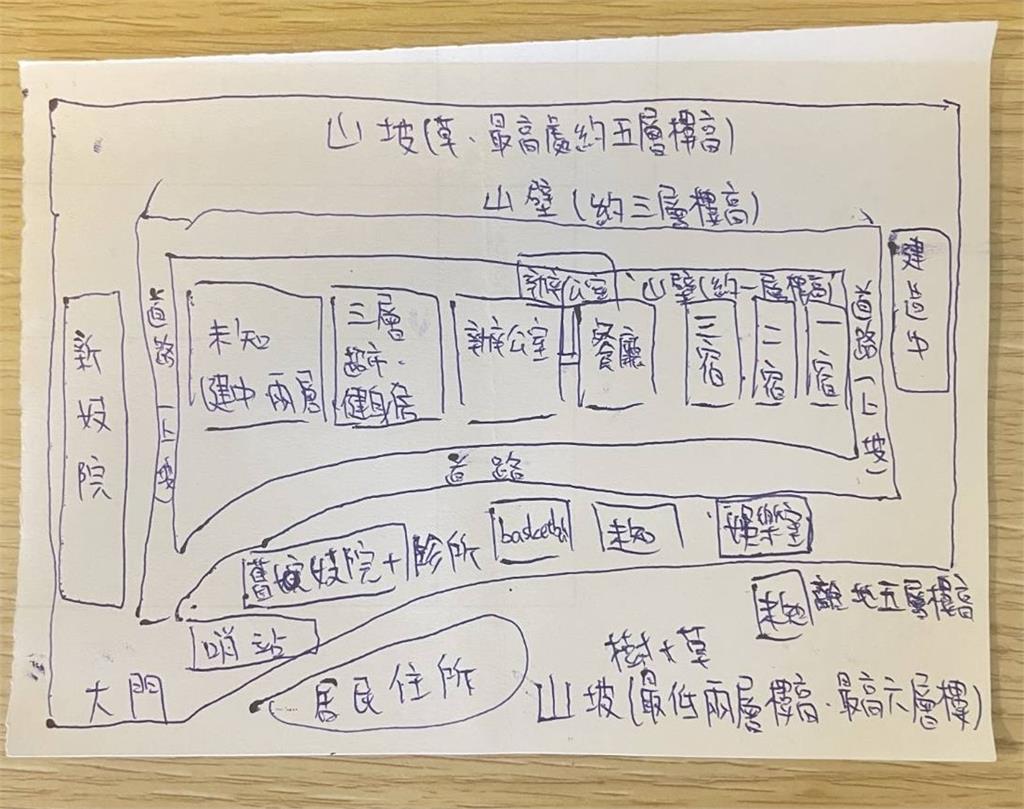 山坡(草、最高處約五層樓高)
山壁(約三層樓高)
建造中
辦公室
山壁(約一層樓高)
新妓院
道路(上坡)
未知
建中 兩層
三層
超市、
健身房
辦公室
餐廳
三宿
二宿
一宿
道路(上坡)
道路
basketball
未知
娛樂室
舊妓院+診所
未知
離地五層樓高
哨站
樹+草
居民住所
大門
山坡(最低兩層樓高、最高六層樓)